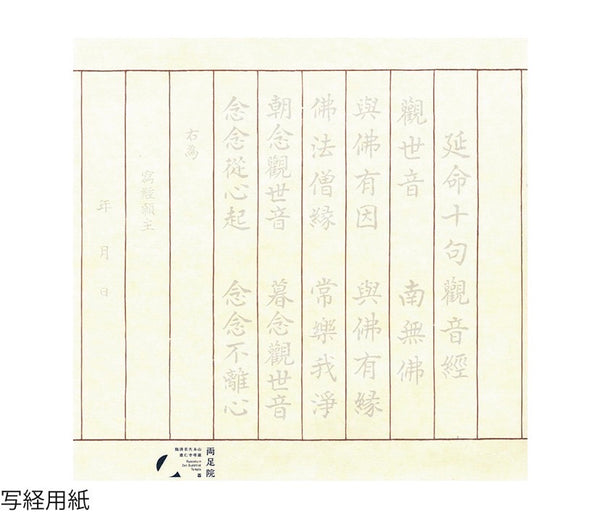 延命十句觀音經
觀世音 南無佛
與佛有因 與佛有緣
佛法僧緣 常樂我淨
朝念觀世音 暮念觀世音
念念從心起 念念不離心
右為
寫經願主
年 月 日
両足院
Ryosokuin
Zen Buddhist
Temple
写経用紙